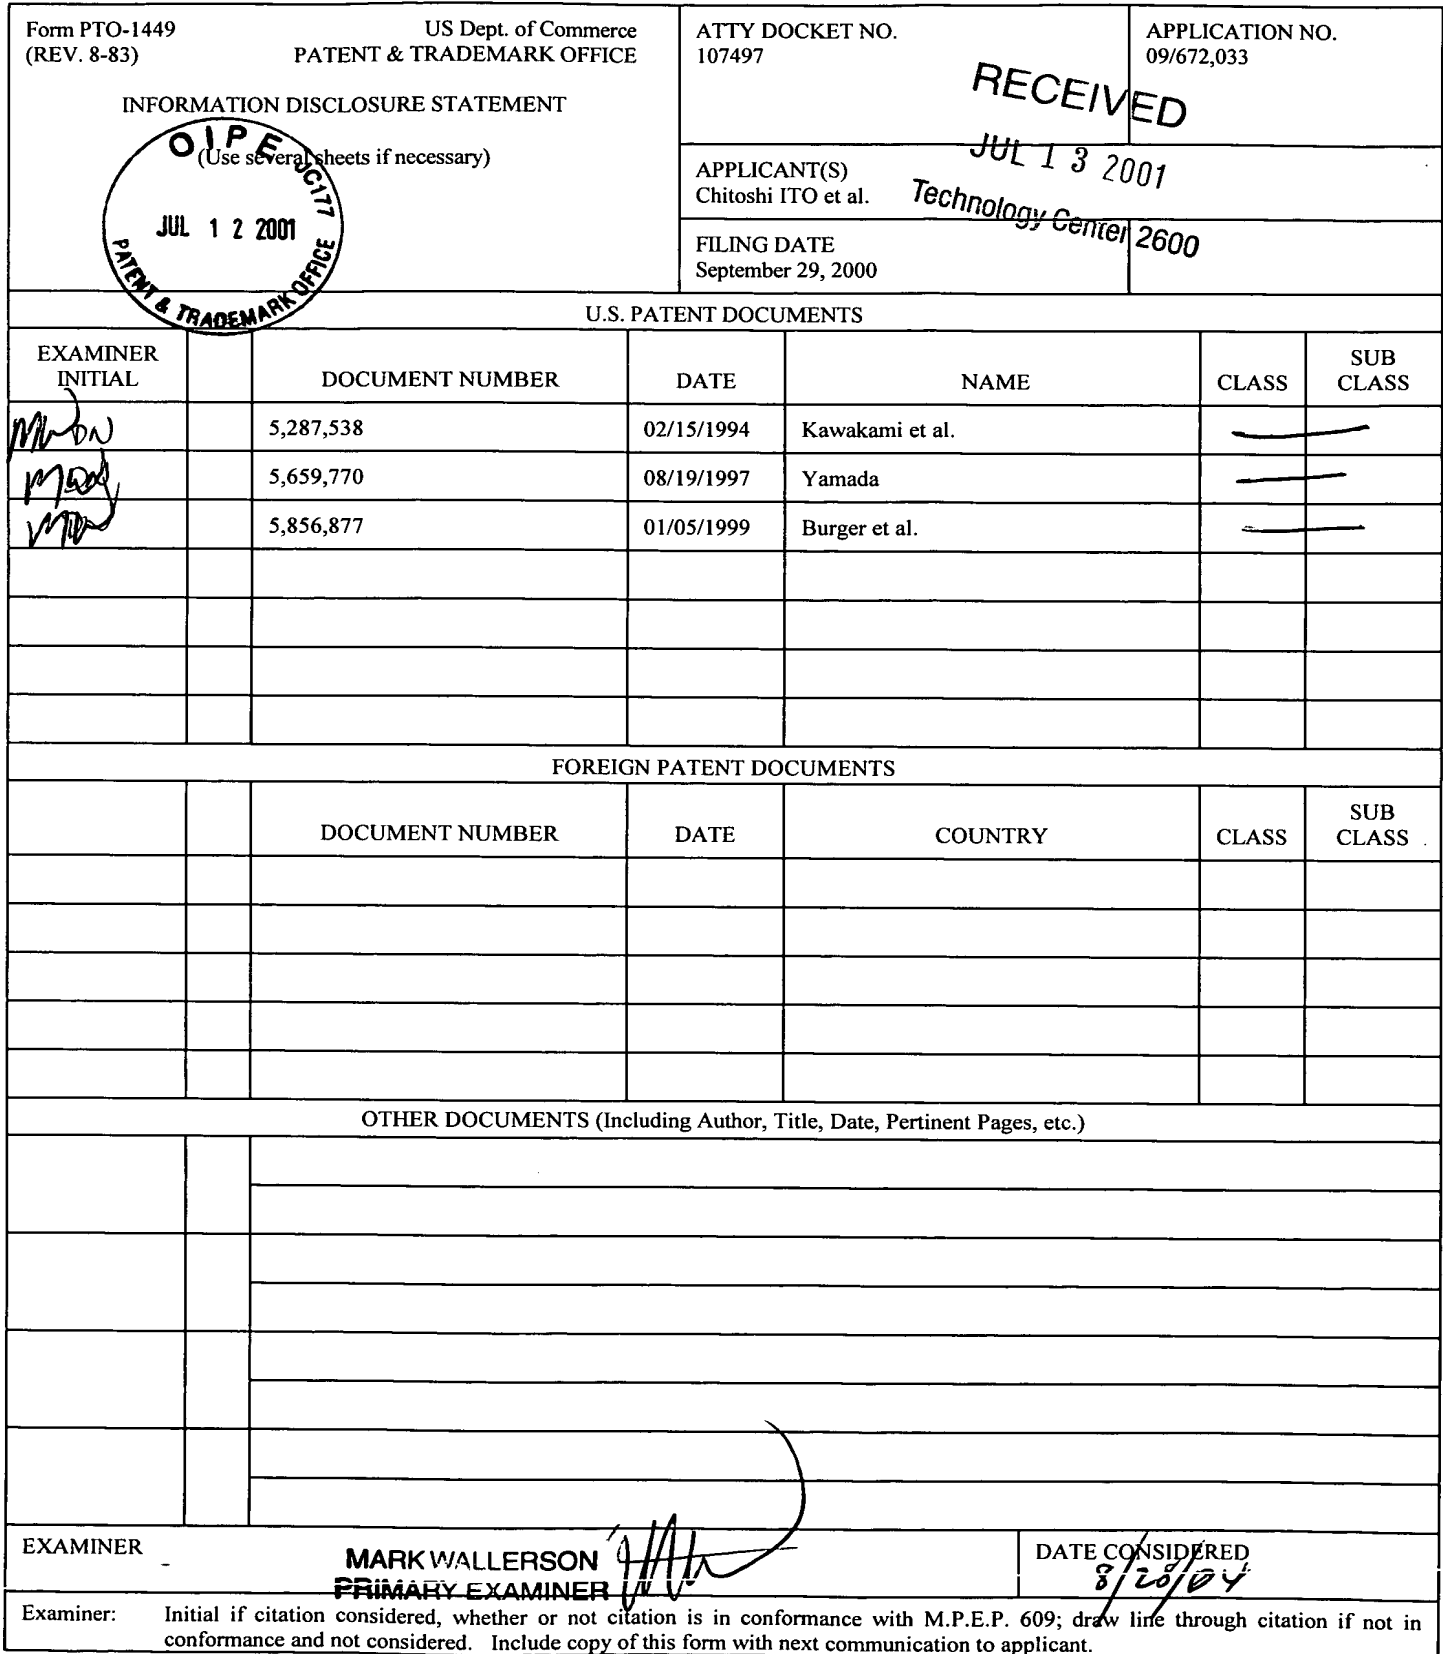 Form PTO-1449 US Dept. of Commerce
(REV. 8-83) PATENT & TRADEMARK OFFICE
INFORMATION DISCLOSURE STATEMENT
(Use several sheets if necessary)
OIPE JC177
JUL 12 2001
PATENT & TRADEMARK OFFICE
ATTY DOCKET NO.
107497
APPLICATION NO.
09/672,033
RECEIVED
JUL 13 2001
Technology Center 2600
APPLICANT(S)
Chitoshi ITO et al.
FILING DATE
September 29, 2000
U.S. PATENT DOCUMENTS
EXAMINER INITIAL DOCUMENT NUMBER DATE NAME CLASS SUB CLASS
5,287,538 02/15/1994 Kawakami et al.
5,659,770 08/19/1997 Yamada
5,856,877 01/05/1999 Burger et al.
FOREIGN PATENT DOCUMENTS
DOCUMENT NUMBER DATE COUNTRY CLASS SUB CLASS
OTHER DOCUMENTS (Including Author, Title, Date, Pertinent Pages, etc.)
EXAMINER
MARK WALLERSON
PRIMARY EXAMINER
DATE CONSIDERED
8/20/04
Examiner: Initial if citation considered, whether or not citation is in conformance with M.P.E.P. 609; draw line through citation if not in
conformance and not considered. Include copy of this form with next communication to applicant.